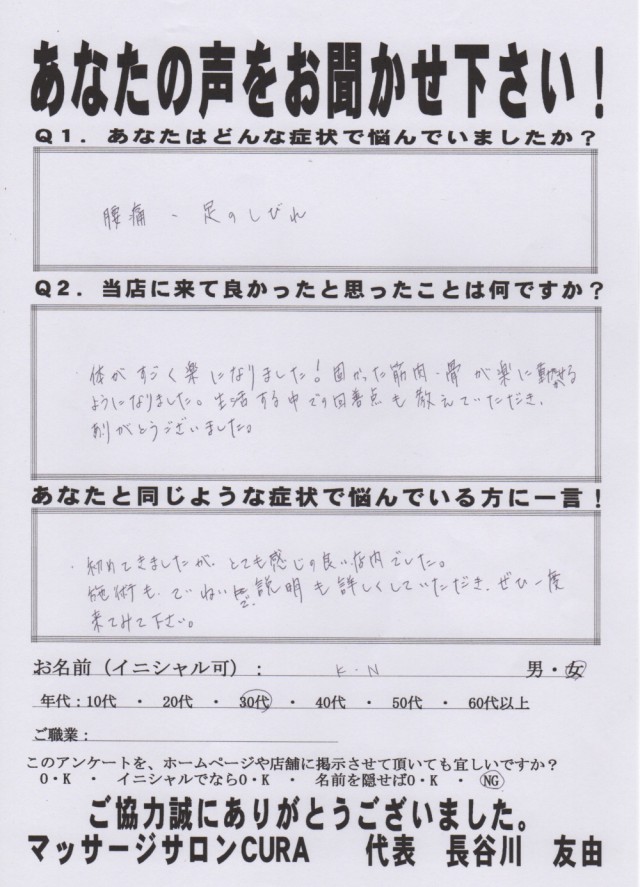 あなたの声をお聞かせ下さい！
Q1．あなたはどんな症状で悩んでいましたか？
腰痛・足のしびれ
Q2．当店に来て良かったと思ったことは何ですか？
・体がすごく楽になりました！固かった筋肉・骨が楽に動かせる
ようになりました。生活する中での改善点も教えていただき、
ありがとうございました。
あなたと同じような症状で悩んでいる方に一言！
・初めてきましたが、とても感じの良い店内でした。
施術も、ていねいで、説明も詳しくしていただき、ぜひ一度
来てみて下さい。
お名前（イニシャル可）： K.N 男・女
年代：10代 ・ 20代 ・ 30代 ・ 40代 ・ 50代 ・ 60代以上
ご職業：
このアンケートを、ホームページや店舗に掲示させて頂いても宜しいですか？
O・K ・ イニシャルでならO・K ・ 名前を隠せばO・K ・ NG
ご協力誠にありがとうございました。
マッサージサロンCURA 代表 長谷川 友由